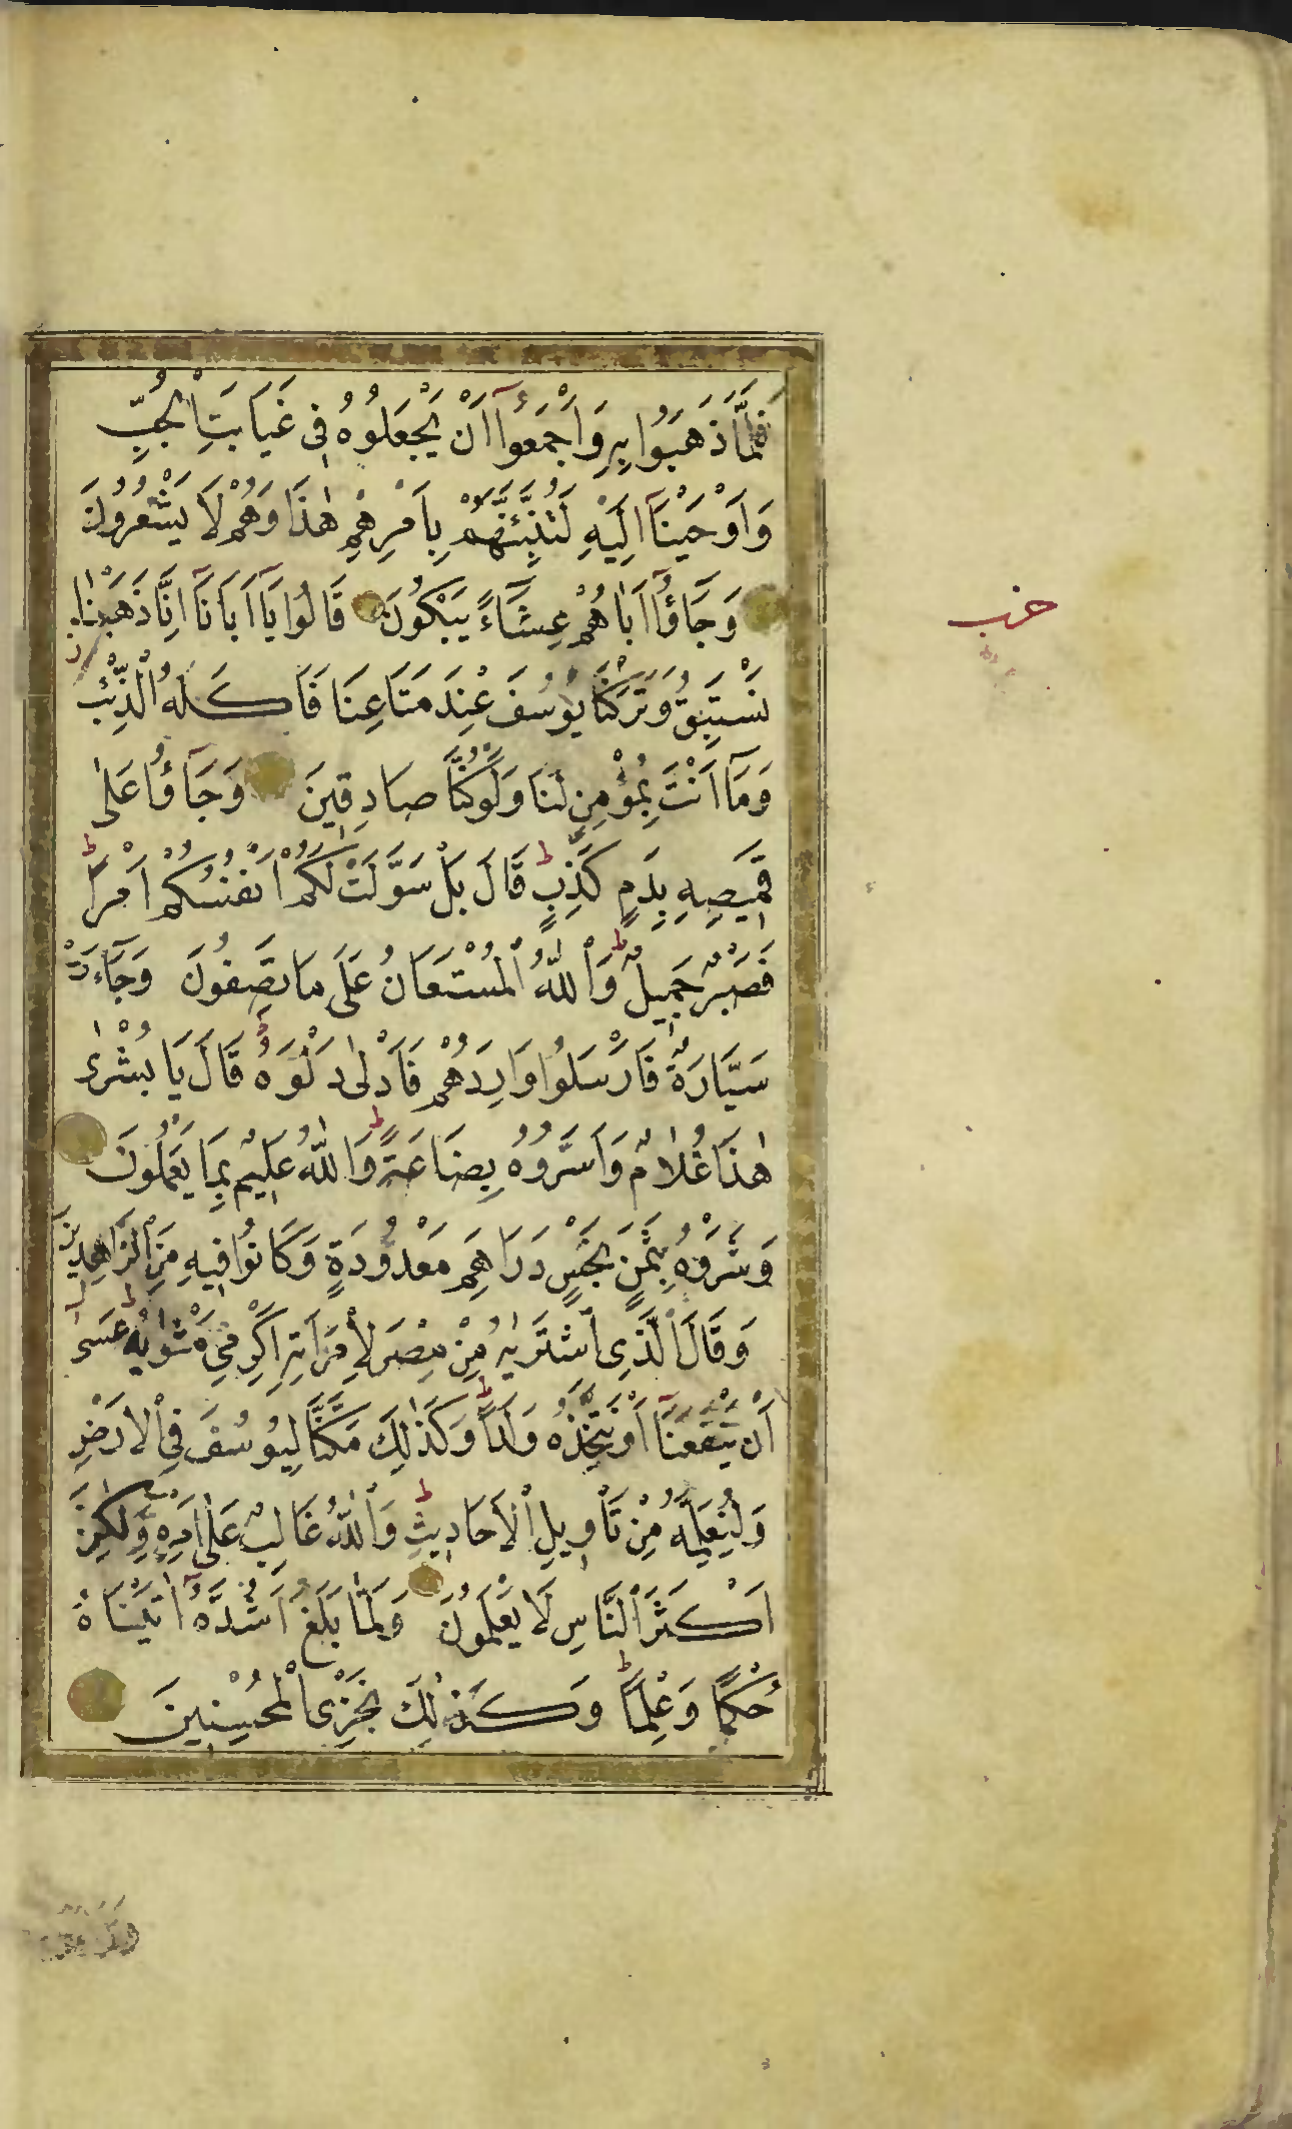 فَلَمَّا ذَهَبُوا بِهِ وَاَجْمَعُٓوا اَنْ يَجْعَلُوهُ فِى غَيَابَتِ الْجُبِّ
وَاَوْحَيْنَٓا اِلَيْهِ لَتُنَبِّئَنَّهُمْ بِاَمْرِهِمْ هٰذَا وَهُمْ لَا يَشْعُرُونَ
وَجَٓاؤُٓا اَبَاهُمْ عِشَٓاءً يَبْكُونَ قَالُوا يَٓا اَبَانَٓا اِنَّا ذَهَبْنَا
نَسْتَبِقُ وَتَرَكْنَا يُوسُفَ عِنْدَ مَتَاعِنَا فَاَكَلَهُ الذِّئْبُ
وَمَٓا اَنْتَ بِمُؤْمِنٍ لَنَا وَلَوْ كُنَّا صَادِقِينَ وَجَٓاؤُ عَلٰى
قَمِيصِهِ بِدَمٍ كَذِبٍ ط قَالَ بَلْ سَوَّلَتْ لَكُمْ اَنْفُسُكُمْ اَمْرًا ط
فَصَبْرٌ جَمِيلٌ ط وَاللّٰهُ الْمُسْتَعَانُ عَلٰى مَا تَصِفُونَ وَجَٓاءَتْ
سَيَّارَةٌ فَاَرْسَلُوا وَارِدَهُمْ فَاَدْلٰى دَلْوَهُ ط قَالَ يَا بُشْرٰى
هٰذَا غُلَامٌ وَاَسَرُّوهُ بِضَاعَةً ط وَاللّٰهُ عَلِيمٌ بِمَا يَعْمَلُونَ
وَشَرَوْهُ بِثَمَنٍ بَخْسٍ دَرَاهِمَ مَعْدُودَةٍ وَكَانُوا فِيهِ مِنَ الزَّاهِدِينَ
وَقَالَ الَّذِى اشْتَرٰيهُ مِنْ مِصْرَ لِامْرَاَتِهِ اَكْرِمِى مَثْوٰيهُ عَسٰى
اَنْ يَنْفَعَنَٓا اَوْ نَتَّخِذَهُ وَلَدًا ط وَكَذٰلِكَ مَكَّنَّا لِيُوسُفَ فِى الْاَرْضِ
وَلِنُعَلِّمَهُ مِنْ تَاْوِيلِ الْاَحَادِيثِ ط وَاللّٰهُ غَالِبٌ عَلٰٓى اَمْرِهِ وَلٰكِنَّ
اَكْثَرَ النَّاسِ لَا يَعْلَمُونَ وَلَمَّا بَلَغَ اَشُدَّهُٓ اٰتَيْنَاهُ
حُكْمًا وَعِلْمًا ط وَكَذٰلِكَ نَجْزِى الْمُحْسِنِينَ
حزب